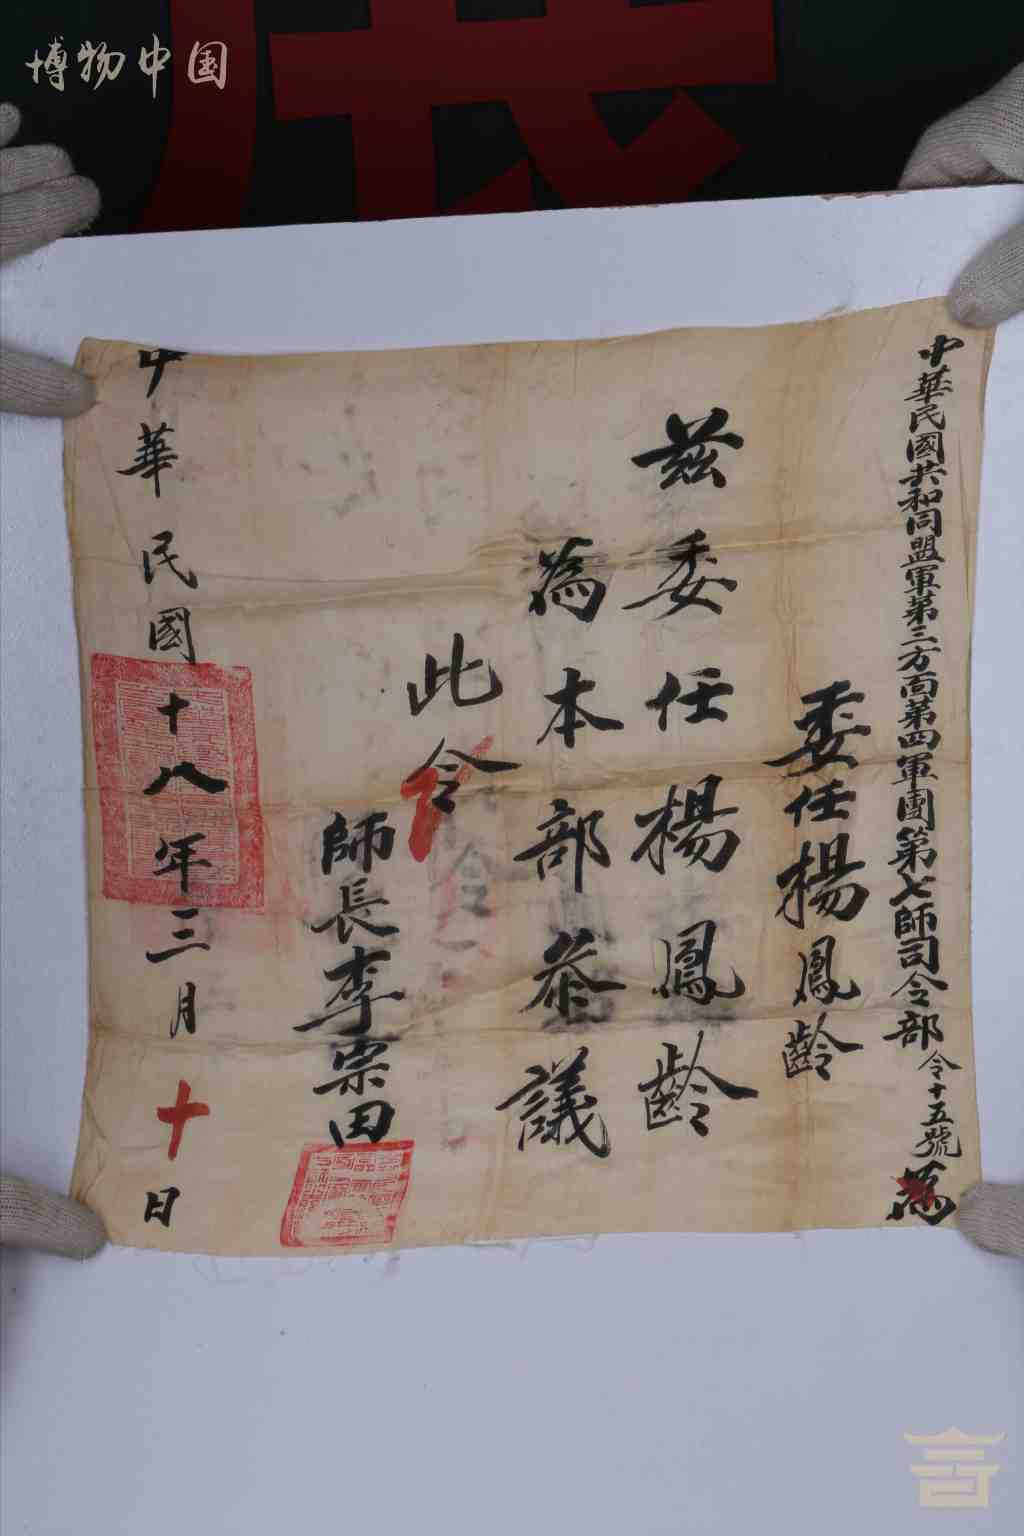 博物中国
中華民國共和同盟軍第三方面第四軍團第七師司令部令十五號
為
委任楊鳳齡
茲委任楊鳳齡
為本部參議
此令
師長李宗田
中華民國十八年三月十日